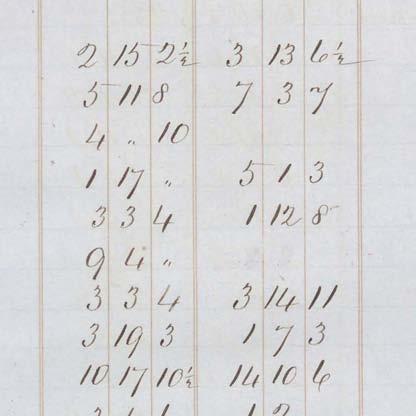 2 15 2½ 3 13 6½
5 11 8 7 3 7
4 " 10
1 17 " 5 1 3
3 3 4 1 12 8
9 4 "
3 3 4 3 14 11
3 19 3 1 7 3
10 17 10½ 14 10 6